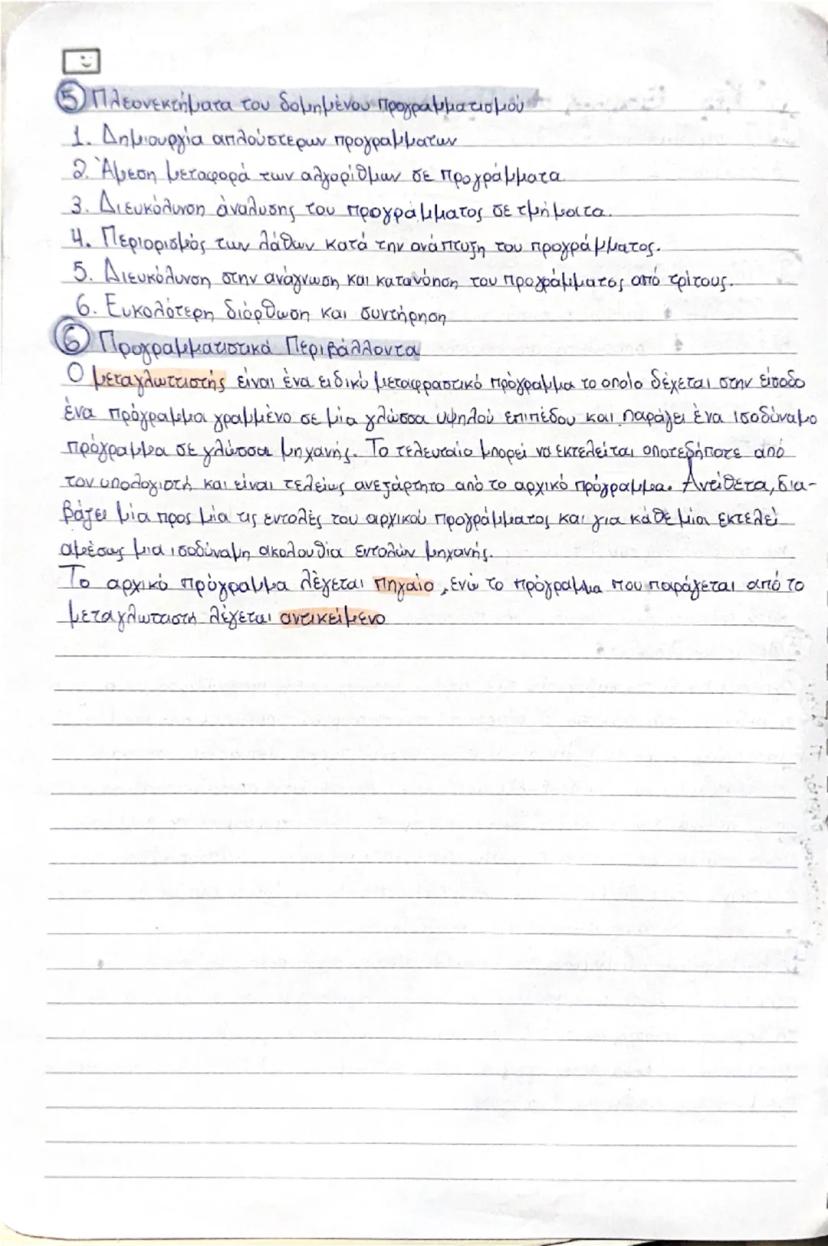 5 Πλεονεκτήματα του δομημένου προγραμματισμού
1. Δημιουργία απλούστερων προγραμμάτων
2. Άμεση μεταφορά των αλγορίθμων σε προγράμματα
3. Διευκόλυνση ανάλυσης του προγράμματος σε τμήματα.
4. Περιορισμός των λάθων κατά την ανάπτυξη του προγράμματος.
5. Διευκόλυνση στην ανάγνωση και κατανόηση του προγράμματος από τρίτους.
6. Ευκολότερη διόρθωση και συντήρηση
6 Προγραμματιστικά Περιβάλλοντα
Ο μεταγλωττιστής είναι ένα ειδικό μεταφραστικό πρόγραμμα το οποίο δέχεται στην είσοδο
ένα πρόγραμμα γραμμένο σε μία γλώσσα υψηλού επιπέδου και παράγει ένα ισοδύναμο
πρόγραμμα σε γλώσσα μηχανής. Το τελευταίο μπορεί να εκτελείται οποτεδήποτε από
τον υπολογιστή και είναι τελείως ανεξάρτητο από το αρχικό πρόγραμμα. Αντίθετα, δια-
βάζει μία προς μία τις εντολές του αρχικού προγράμματος και για κάθε μία εκτελεί
αμέσως μια ισοδύναμη ακολουθία εντολών μηχανής.
Το αρχικό πρόγραμμα λέγεται πηγαίο, ενώ το πρόγραμμα που παράγεται από το
μεταγλωττιστή λέγεται αντικείμενο